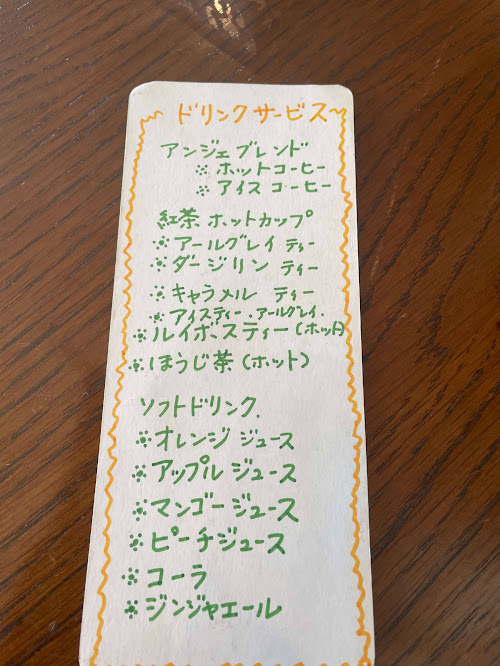 ドリンクサービス〜
アンジェブレンド
※ホットコーヒー
※アイスコーヒー
紅茶 ホットカップ
※アールグレイ ティー
※ダージリン ティー
※キャラメル ティー
※アイスティー.アールグレイ.
※ルイボスティー(ホット)
※ほうじ茶(ホット)
ソフトドリンク.
※オレンジジュース
※アップルジュース
※マンゴージュース
※ピーチジュース
※コーラ
※ジンジャエール